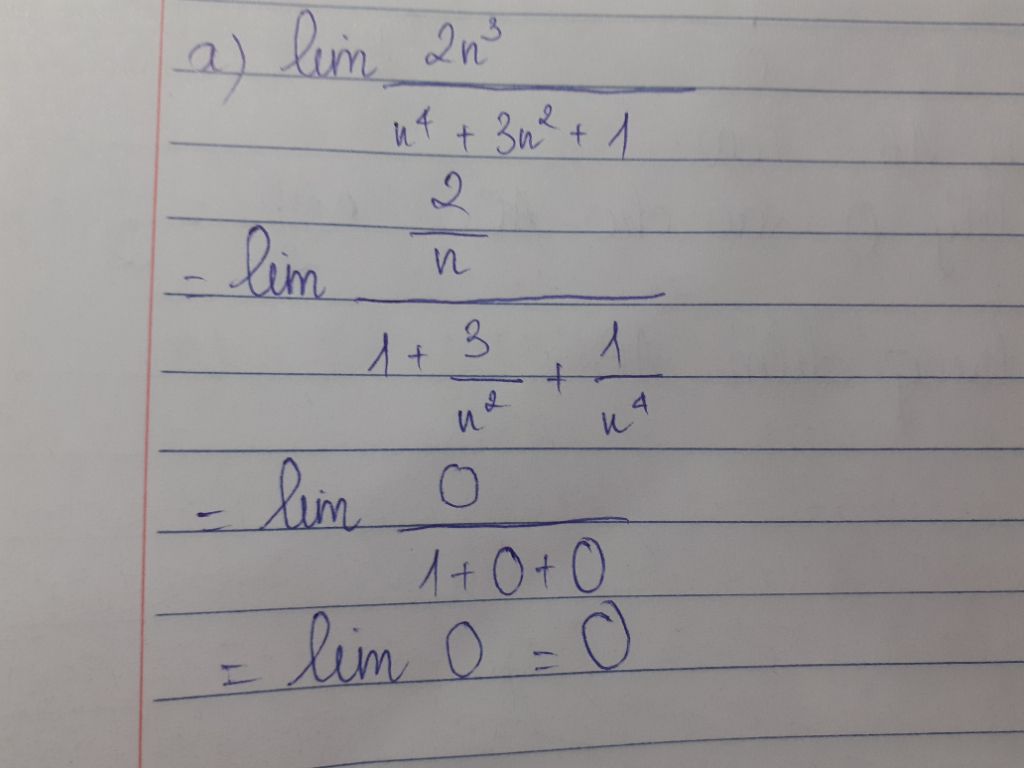 a) lim 2n³ / (n⁴ + 3n² + 1)
= lim (2/n) / (1 + 3/n² + 1/n⁴)
= lim 0 / (1 + 0 + 0)
= lim 0 = 0